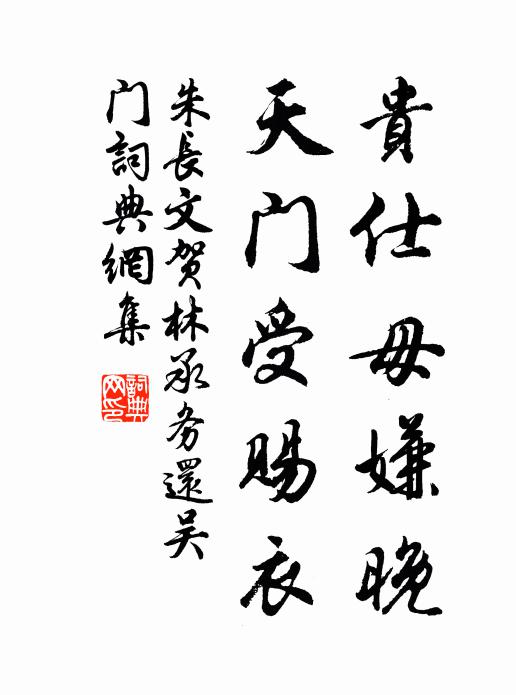 貴仕毋嫌晚
天门受賜衣
朱長文賀林承务還吴
门詞典網集
詞典网印